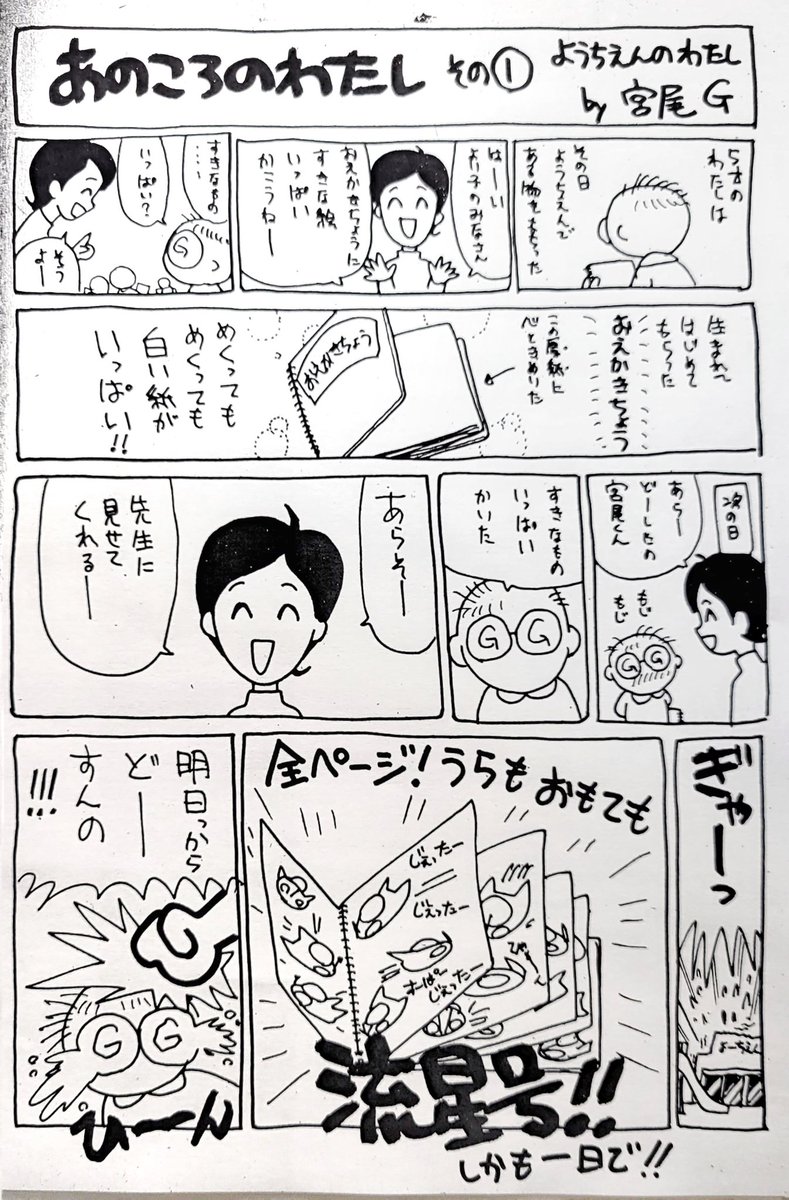 あのころのわたし その① ようちえんのわたし
by 宮尾G
5才の
わたしは
その日
ようちえんで
ある物をもらった
はーい
よい子のみなさん
おえかきちょうに
すきな絵
いっぱい
かこうねー
すきなもの
・・・
いっぱい?
そう
よー
生まれて
はじめて
もらった
おえかきちょう
この厚紙に
心ときめいた
おえかきちょう
めくっても
めくっても
白い紙が
いっぱい!!
次の日
あら〜
どーしたの
宮尾くん
もじ
もじ
すきなもの
いっぱい
かいた
あらそー
先生に
見せて
くれるー
ぎゃーっ
よーちえん
全ページ!うらもおもても
じぇったー
じぇったー
すーぱー
じぇったー
流星号!!
しかも一日で!!
明日っから
どー
すんの
!!!
ひーん